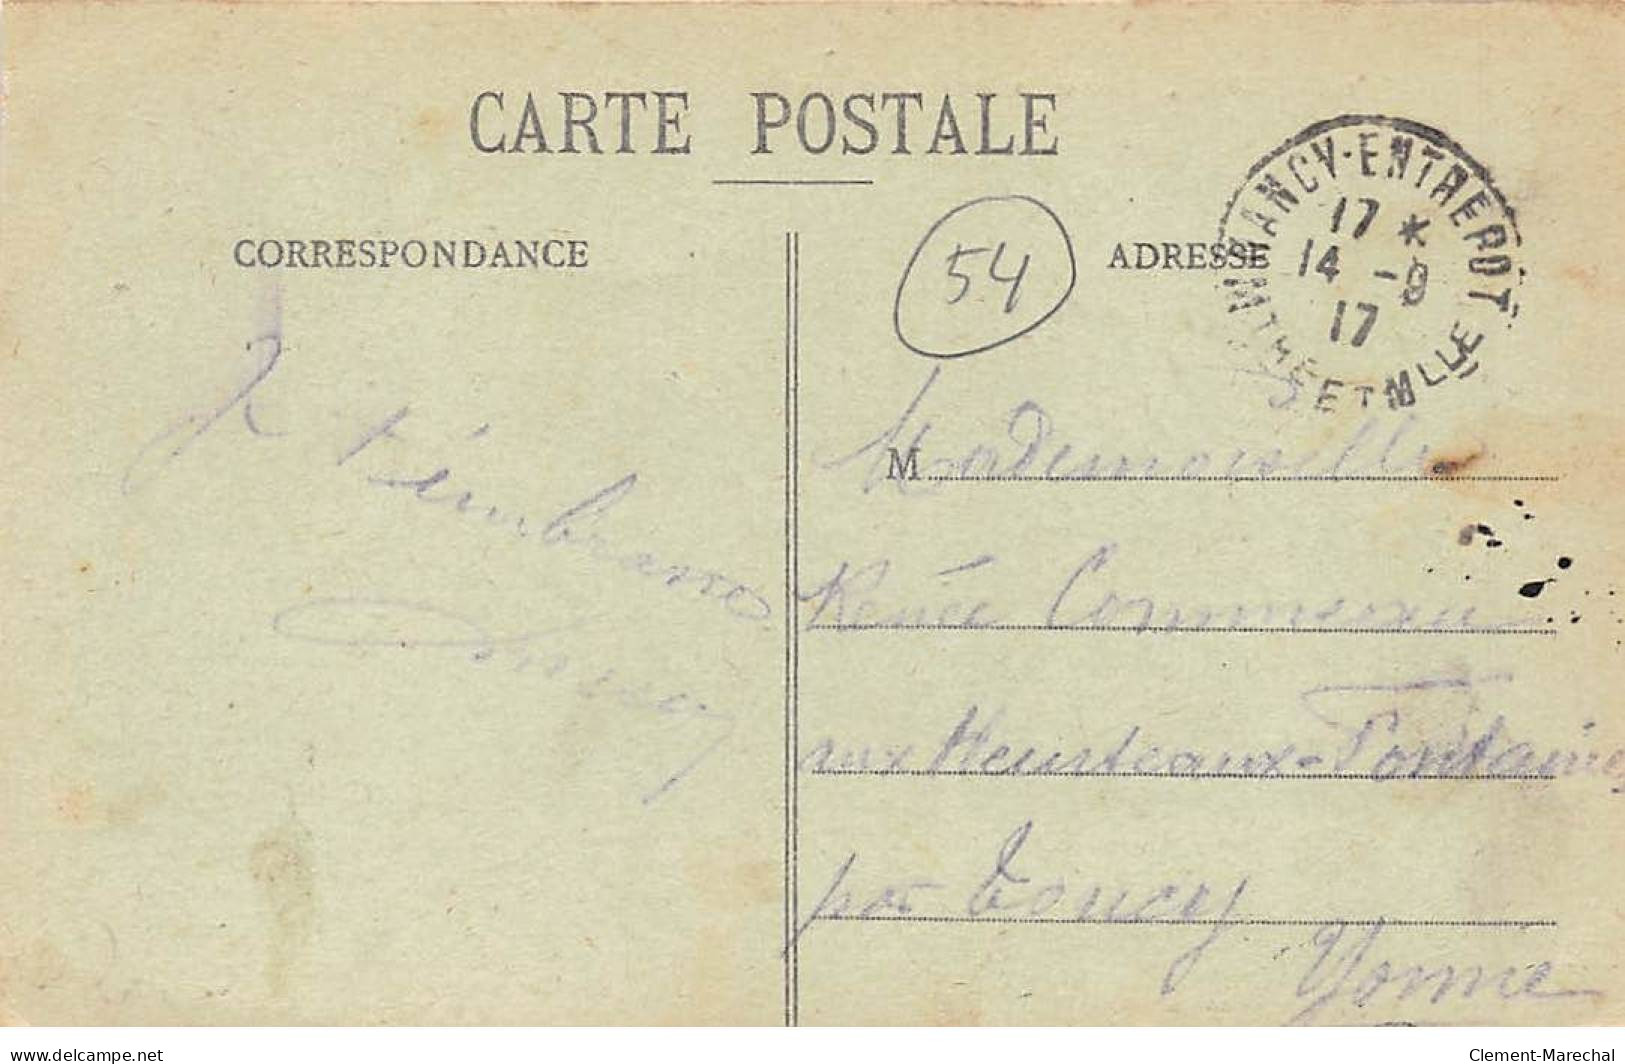 CARTE POSTALE
CORRESPONDANCE
ADRESSE
54
NANCY-ENTREPOT
17 *
14 -8
17
MTHE ET MLLE
Je t'émbrasse
M Mademoiselle
Renée Commeau
aux Heurteaux-Fontaines
par Toucy
Yonne
www.delcampe.net
Clement-Marechal